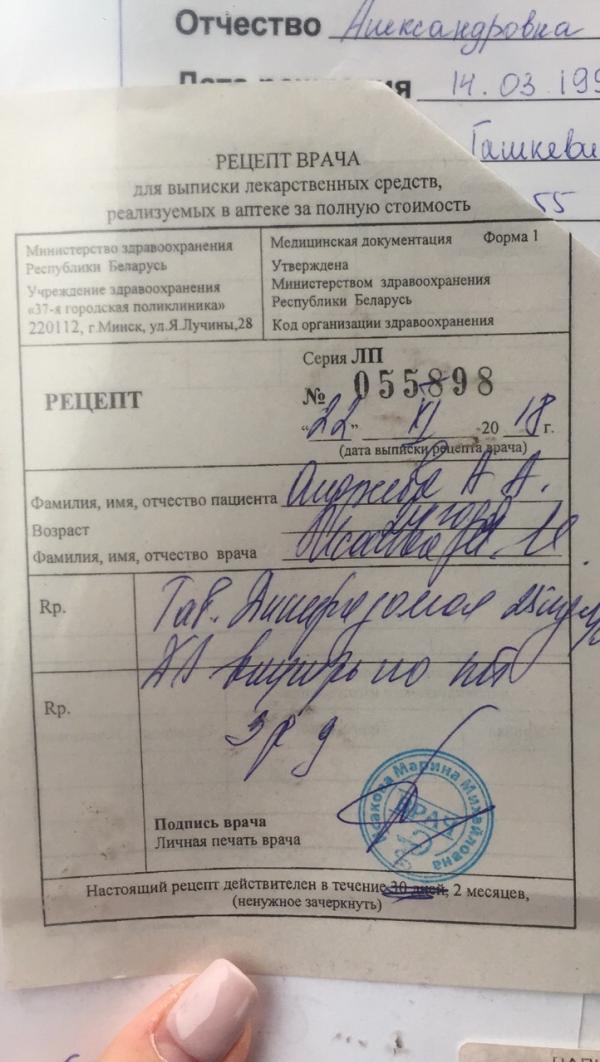 Отчество Александровна
14.03.199
Ташкеви
55
РЕЦЕПТ ВРАЧА
для выписки лекарственных средств,
реализуемых в аптеке за полную стоимость
Министерство здравоохранения
Республики Беларусь
Учреждение здравоохранения
«37-я городская поликлиника»
220112, г.Минск, ул.Я.Лучины,28
Медицинская документация Форма 1
Утверждена
Министерством здравоохранения
Республики Беларусь
Код организации здравоохранения
РЕЦЕПТ
Серия ЛП
№ 055898
"22" XI 20 18 г.
(дата выписки рецепта врача)
Фамилия, имя, отчество пациента А А.
Возраст 24 года
Фамилия, имя, отчество врача
Rp. Таб.
внутрь по
Rp.
Подпись врача
Личная печать врача
Исакова Марина Михайловна
ВРАЧ
Настоящий рецепт действителен в течение 30 дней, 2 месяцев,
(ненужное зачеркнуть)